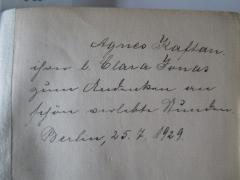 Agnes Kaftan
ihrer l. Clara Jonas
zum Andenken an
schön verlebte Stunden.
Berlin, 25. 7. 1929.